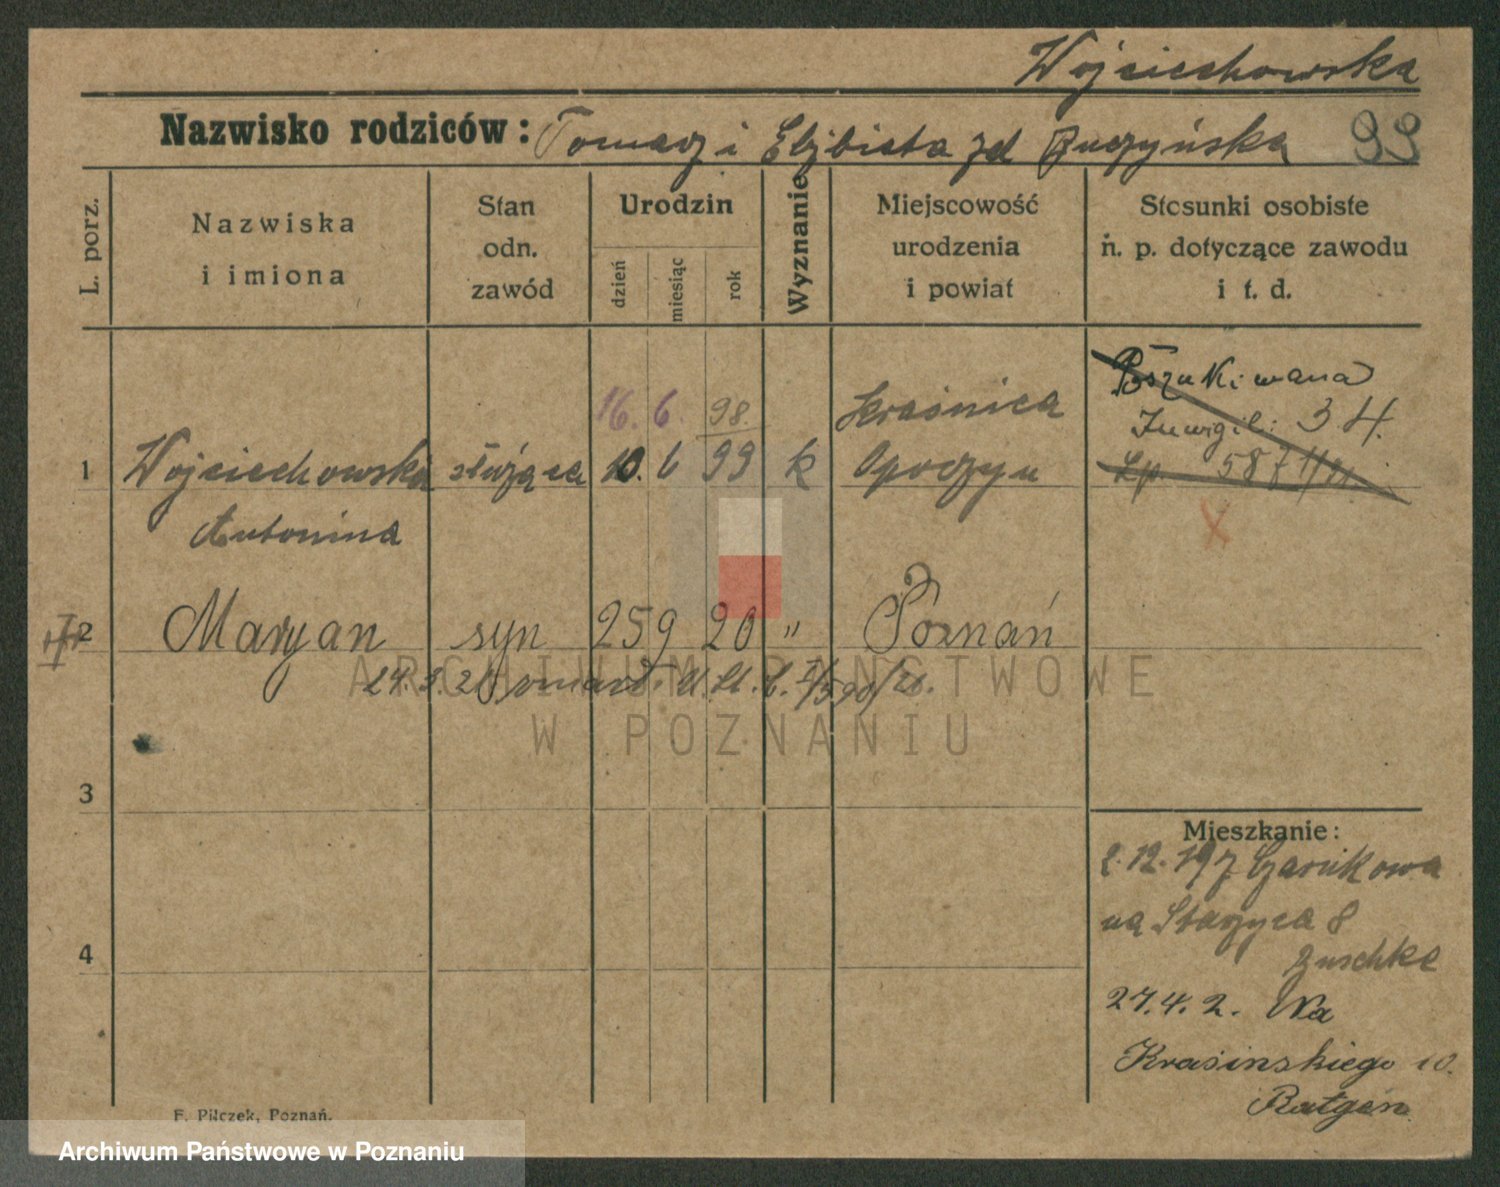 Wojciechowska
Nazwisko rodziców: Tomasz i Elżbieta zd Buczyńska 99
L. porz.
Nazwiska
i imiona
Stan
odn.
zawód
Urodzin
dzień
miesiąc
rok
Wyznanie
Miejscowość
urodzenia
i powiat
Stosunki osobiste
n. p. dotyczące zawodu
i t. d.
16. 6. 98. Kraśnica
1 Wojciechowska służąca 10. 6 99 k Opoczyn
Antonina
Poszukiwana
Inwigil: 34.
Lp. 587
X
2 Maryan syn 25 9 20 " Poznań
24. 21
3
4
Mieszkanie:
2.12.19 z Czarnkowa
na Staszyca 8
Zuschke
27.4.2. Na
Krasinskiego 10.
Ratgen
F. Pilczek, Poznań.
ARCHIWUM PAŃSTWOWE
W POZNANIU
Archiwum Państwowe w Poznaniu